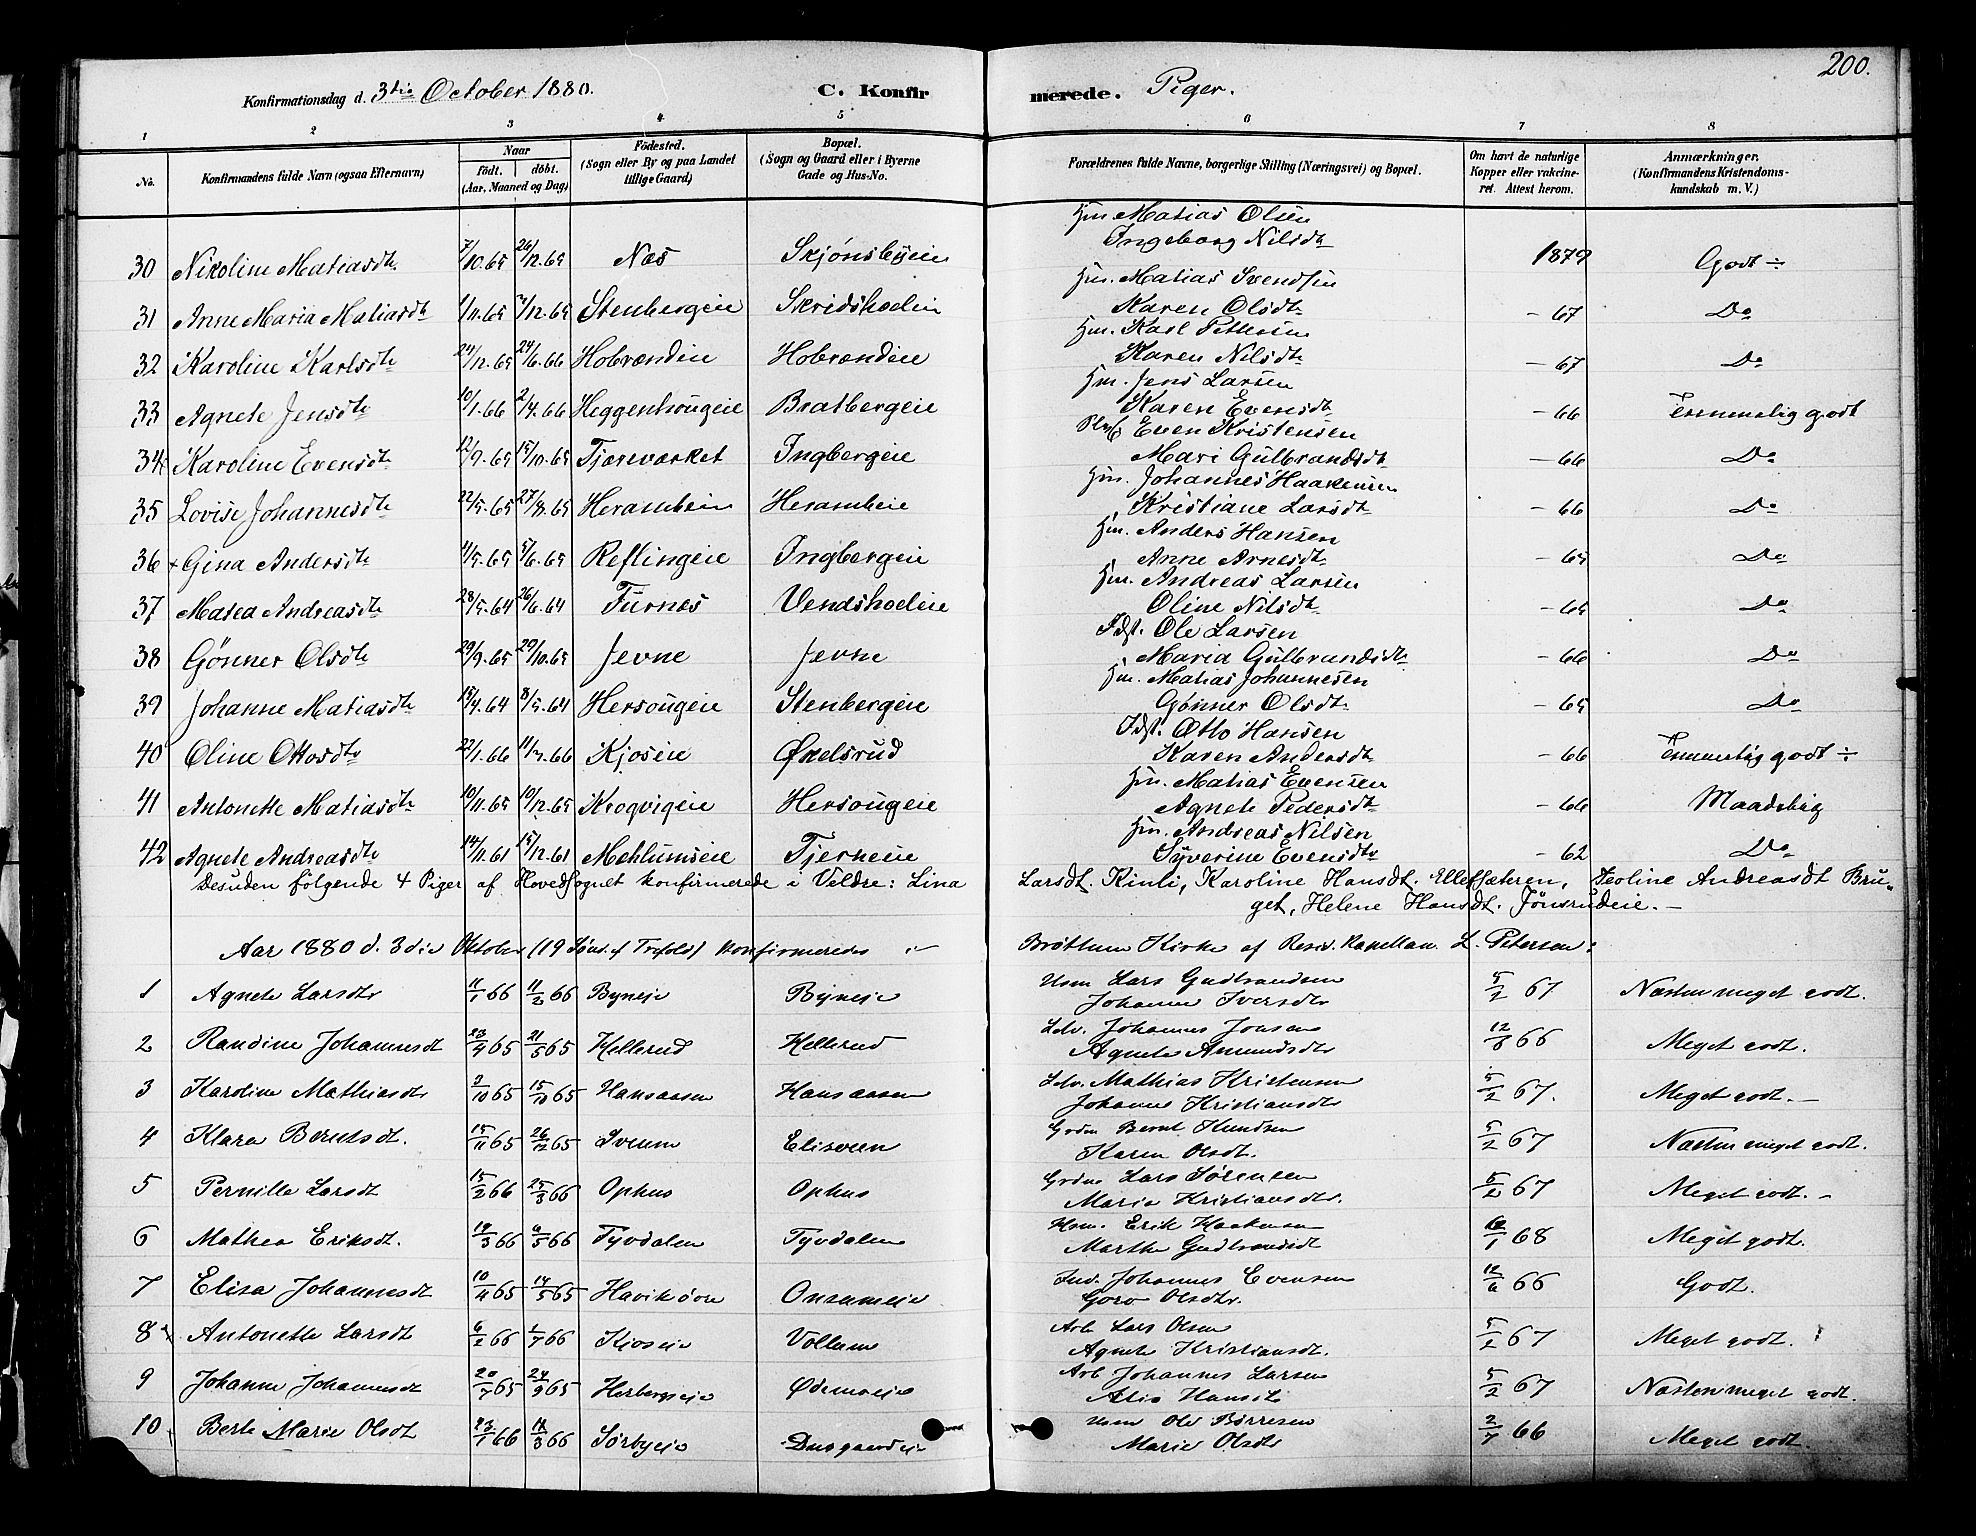 200.
Konfirmationsdag d. 3die October 1880. C. Konfirmerede. Piger.
1 2 3 4 5 6 7 8
No. Konfirmandens fulde Navn (ogsaa Efternavn) Naar födt. döbt. (Aar, Maaned og Dag) Födested. (Sogn eller By og paa Landet tillige Gaard) Bopæl. (Sogn og Gaard eller i Byerne Gade og Hus-No.) Forældrenes fulde Navne, borgerlige Stilling (Næringsvei) og Bopæl. Om havt de naturlige Kopper eller vakcineret. Attest herom. Anmærkninger. (Konfirmandens Kristendomskundskab m. V.)
Hm Matias Olsen
30 Nikoline Matiasdtr 7/10.65 26/12.65 Næs Skjønsbyeie Ingeborg Nilsdtr 1879 Godt ÷
Hm. Matias Svendsen
31 Anne Maria Matiasdtr 1/11.65 3/12.65 Stenbergeie Skridshoelen Karen Olsdtr - 67 Do
Hm. Karl Pettersen
32 Karoline Karlsdtr 24/12.65 24/6.66 Hobrændeie Hobrændeie Karen Nilsdtr - 67 Do
Hm. Jens Larsen
33 Agnete Jensdtr 10/1.66 2/4.66 Heggenhougeie Bratbergeie Karen Evensdtr - 66 Temmelig godt
Even Kristensen
34 Karoline Evensdtr 12/9.65 15/10.65 Tjæreværket Ingbergeie Mari Gulbrandsdtr - 66 Do
Hm. Johannes Haakensen
35 Lovise Johannesdtr 22/5.65 27/8.65 Herambeie Herambeie Kristiane Larsdtr - 66 Do
Hm. Anders Hansen
36 + Gina Andersdtr 11/5.65 5/6.65 Reflingeie Ingbergeie Anne Arnesdtr - 65 Do
Hm. Andreas Larsen
37 Masea Andreasdtr 28/5.64 26/6.64 Furnæs Vendshoeleie Oline Nilsdtr - 65 Do
Idst. Ole Larsen
38 Gönner Olsdtr 29/9.65 29/10.65 Jevne Jevne Maria Gulbrandsdtr - 66 Do
Hm. Matias Johannesen
39 Johanne Matiasdtr 15/4.64 8/5.64 Hersougeie Stenbergeie Gönner Olsdtr - 65 Do
Idst. Otto Hansen
40 Oline Ottosdtr 22/1.66 11/3.66 Kjoseie Øxelsrud Karen Andersdtr - 66 Temmelig godt ÷
Hm. Matias Evensen
41 Antonette Matiasdtr 10/11.65 10/12.65 Krogvigeie Hersougeie Agnete Pedersdtr - 66 Maadelig
Hm. Andreas Nilsen
42 Agnete Andreasdtr 14/11.61 15/12.61 Mehlumseie Tjerneie Syverine Evensdtr - 62 Do
Desuden følgende 4 Piger af Hovedsognet konfirmerede i Veldre: Lina Larsdt. Kinli, Karoline Hansdt. Ellefsæteren, Teoline Andreasdt Bru-
get, Helene Hansdt. Jönsrudeie. -
Aar 1880 d. 3die Oktober (19 Sönd. e. Trefold.) konfirmeredes i Brøttum Kirke af Resid. Kapellan L. Petersen:
Hsm Lars Gudbrandsen
1 Agnete Larsdtr 11/1 66 11/2 66 Byneie Byneie Johanne Iversdtr 5/2 67 Næsten meget godt.
Ldv. Johannes Jonsen
2 Randine Johannesdt 23/4 65 21/5 65 Hellerud Hellerud Agnete Amundsdtr 12/8 66 Meget godt.
Ldv. Mathias Kristensen
3 Karoline Mathiasdtr 2/10 65 15/10 65 Hansaasen Hansaasen Johanne Kristiansdtr 5/2 67. Meget godt. -
Grdm Bernt Knudsen
4 Klara Berntsdt. 15/11 65 26/12 65 Sveum Eliseeen Karen Olsdt. 5/2 67 Næsten meget godt.
Grdm Lars Sørensen
5 Pernille Larsdt 15/2 66 25/3 66 Ophus Ophus Marie Kristiansdtr. 5/2 67 Meget godt. -
Hsm. Erik Haakensen
6 Mathea Eriksdt. 19/3 66 6/5 66 Tyvdalen Tyvdalen Marthe Gudbrandsdt 10/1 68 Meget godt.
Ind. Johannes Evensen
7 Elisa Johannesdt 10/4 65 14/5 65 Havik övre Onsumeie Goro Olsdtr. 12/6 66 Godt.
Arb Lars Olsen
8 Antonette Larsdt 6/2 66 1/7 66 Kjoseie Vollum Agnete Kristiansdt. 5/2 67 Meget godt.
Arb Johannes Larsen
9 Johanne Johannesdt 20/7 65 24/9 65 Herbergseie Ødemoeie Alis Hansdt 5/2 67 Næsten meget godt.
Hsm Ole Børresen
10 Berte Marie Olsdt 23/1 66 18/3 66 Sørbyeie Marie Olsdtr 2/7 66 Meget godt.